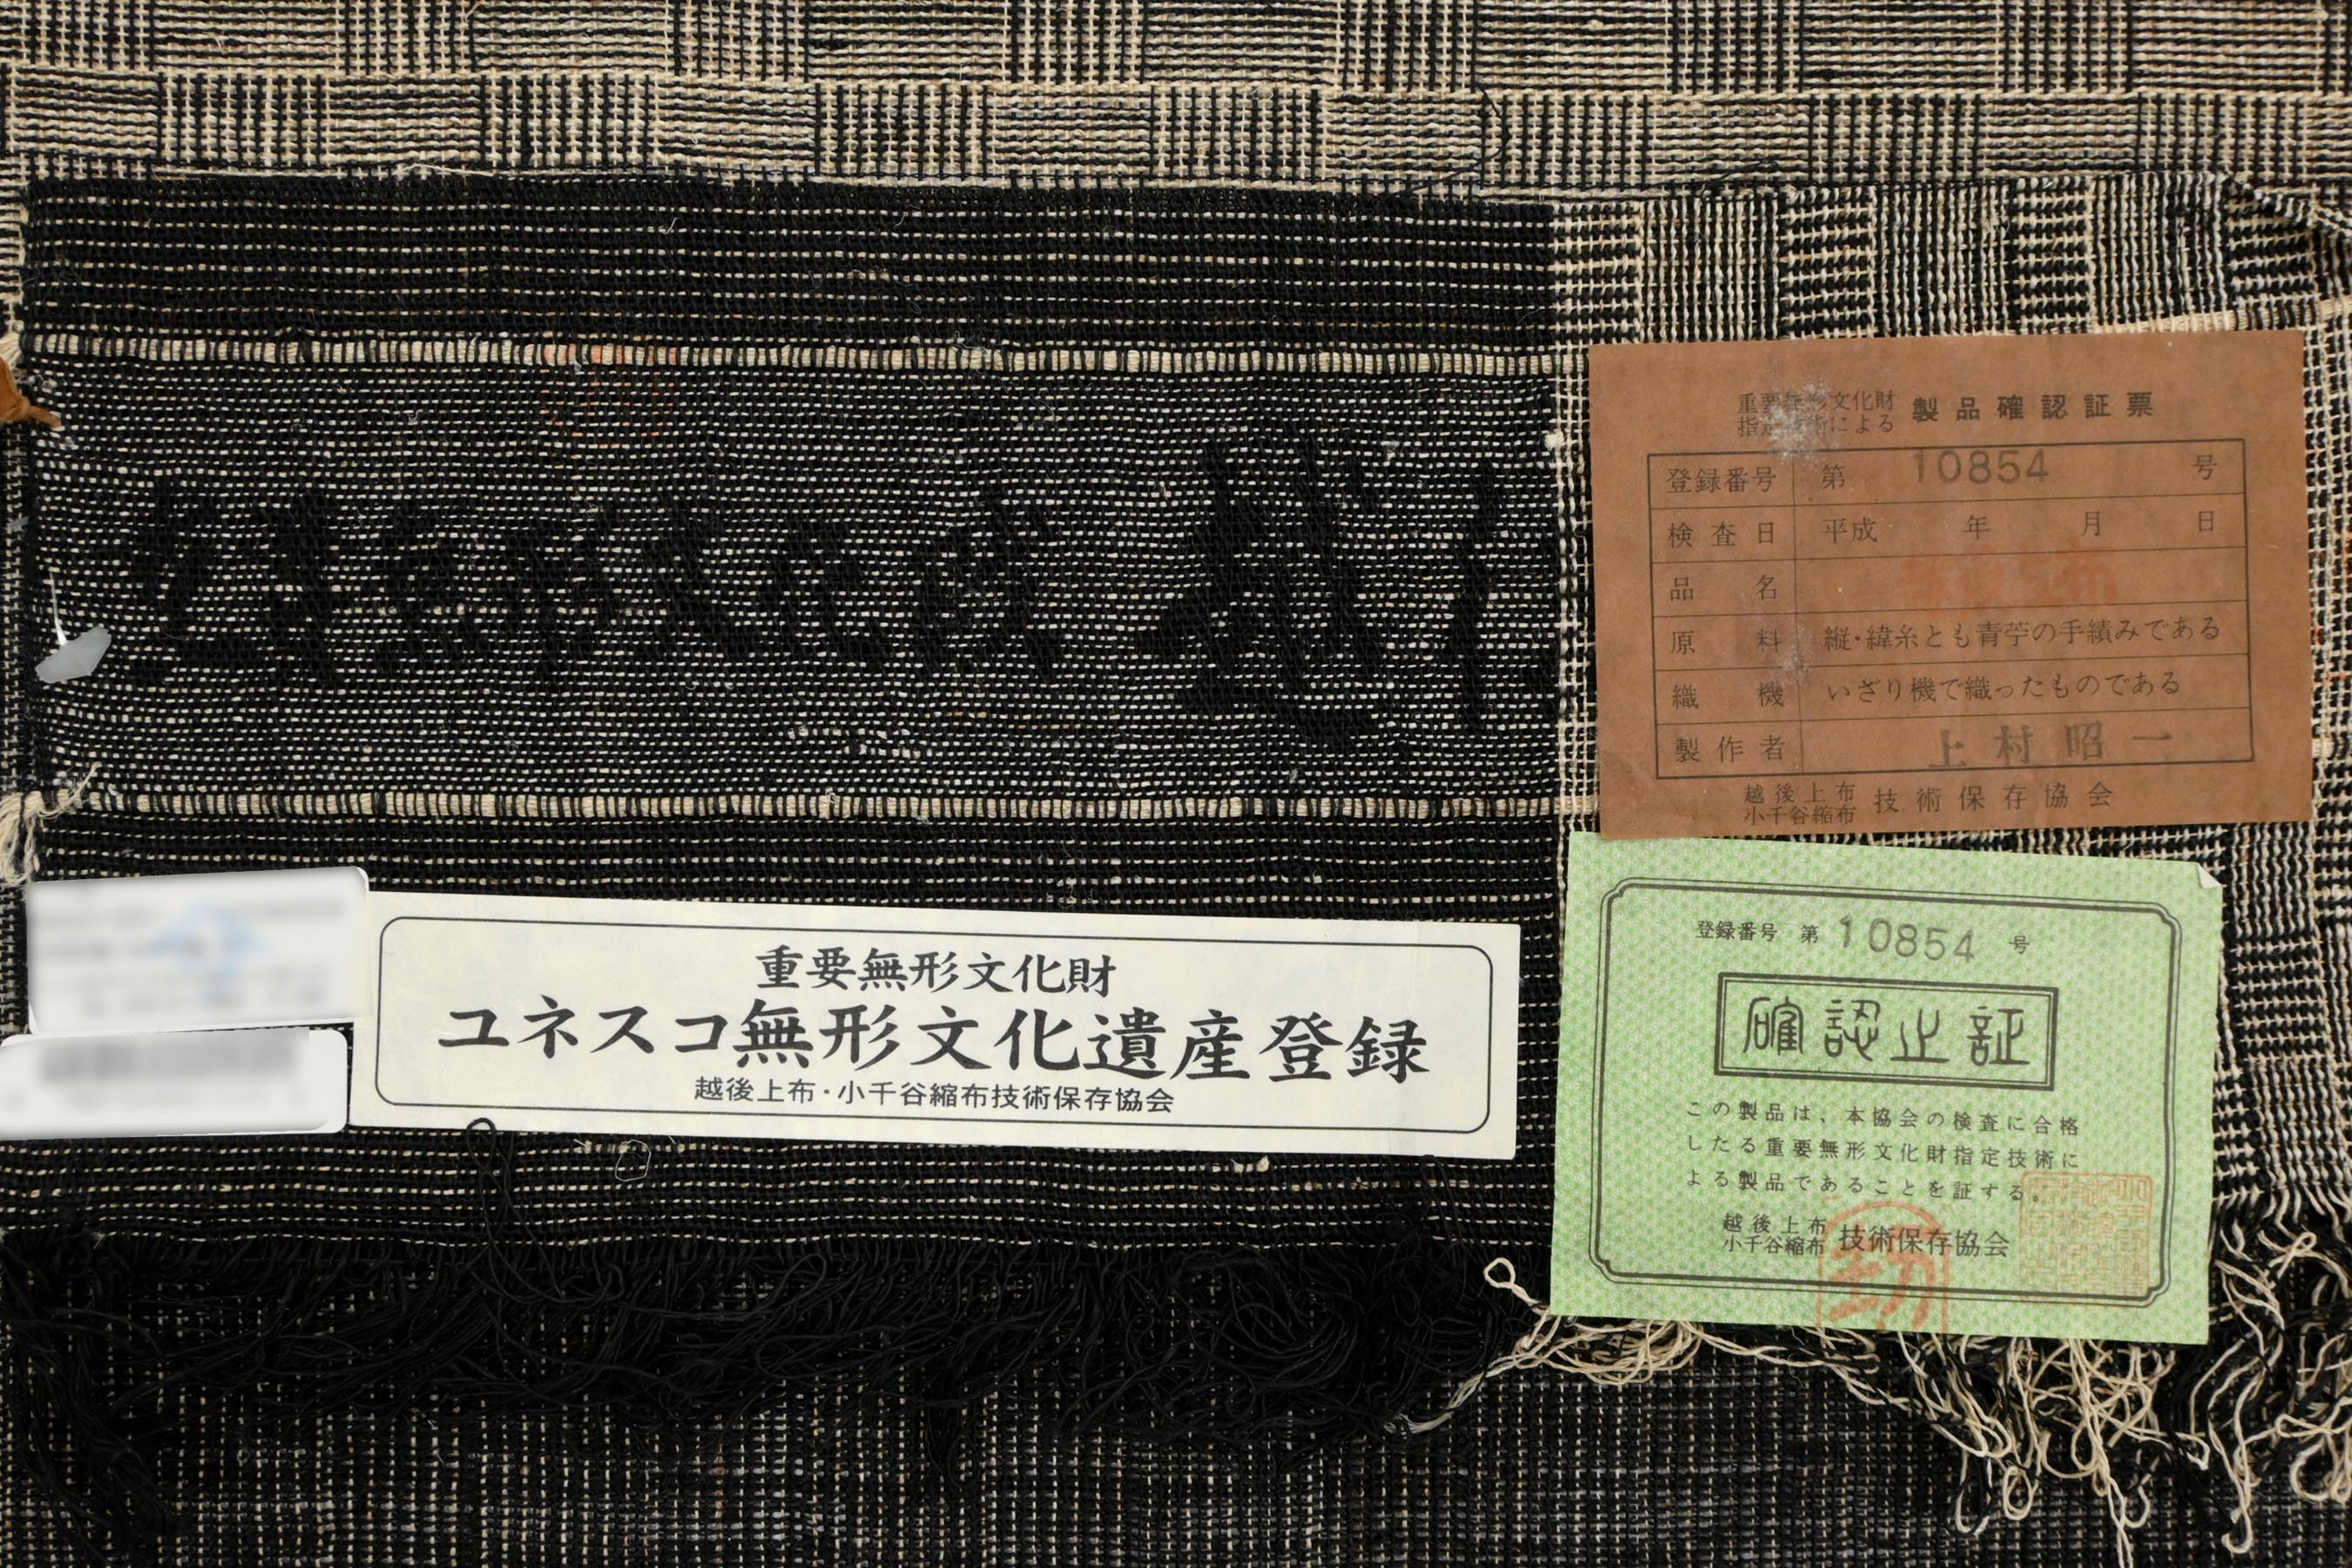 重要無形文化財
指定技術による
製品確認証票
登録番号 第 10854 号
検査日 平成 年 月 日
品名
原料 縦・緯糸とも青苧の手績みである
織機 いざり機で織ったものである
製作者 上村昭一
越後上布
小千谷縮布
技術保存協会
重要無形文化財
ユネスコ無形文化遺産登録
越後上布・小千谷縮布技術保存協会
登録番号 第 10854 号
確認止証
この製品は、本協会の検査に合格
したる重要無形文化財指定技術に
よる製品であることを証する。
越後上布
小千谷縮布
技術保存協会